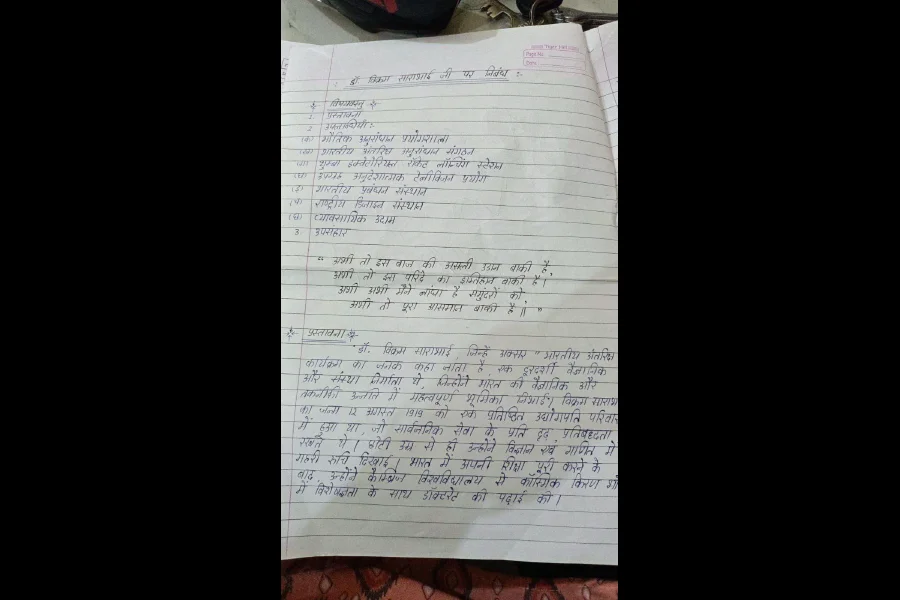 Page No.
Date
डॉ. विक्रम साराभाई जी पर निबंध :-
विषयवस्तु :-
1. प्रस्तावना
2. उपलब्धियाँ :-
भौतिक अनुसंधान प्रयोगशाला
भारतीय अंतरिक्ष अनुसंधान संगठन
थुम्बा इक्वेटोरियल रॉकेट लॉन्चिंग स्टेशन
उपग्रह अनुदेशात्मक टेलीविजन प्रयोग
भारतीय प्रबंधन संस्थान
राष्ट्रीय डिजाइन संस्थान
व्यावसायिक उद्यम
3. उपसंहार
" अभी तो इस बाज की असली उड़ान बाकी है,
अभी तो इस परिंदे का इम्तिहान बाकी है।
अभी अभी मैंने लांघा है समुंदरों को,
अभी तो पूरा आसमान बाकी है॥ "
प्रस्तावना :-
डॉ. विक्रम साराभाई, जिन्हें अक्सर " भारतीय अंतरिक्ष
कार्यक्रम का जनक कहा जाता है, एक दूरदर्शी वैज्ञानिक
और संस्था निर्माता थे, जिन्होंने भारत की वैज्ञानिक और
तकनीकी उन्नति में महत्वपूर्ण भूमिका निभाई। विक्रम साराभा
का जन्म 12 अगस्त 1919 को एक प्रतिष्ठित उद्योगपति परिवार
में हुआ था, जो सार्वजनिक सेवा के प्रति दृढ़ प्रतिबद्धता
रखते थे। छोटी उम्र से ही उन्होंने विज्ञान एवं गणित में
गहरी रुचि दिखाई। भारत में अपनी शिक्षा पूरी करने के
बाद, उन्होंने कैम्ब्रिज विश्वविद्यालय से कॉस्मिक किरण
में विशेषज्ञता के साथ डॉक्टरेट की पढ़ाई की।